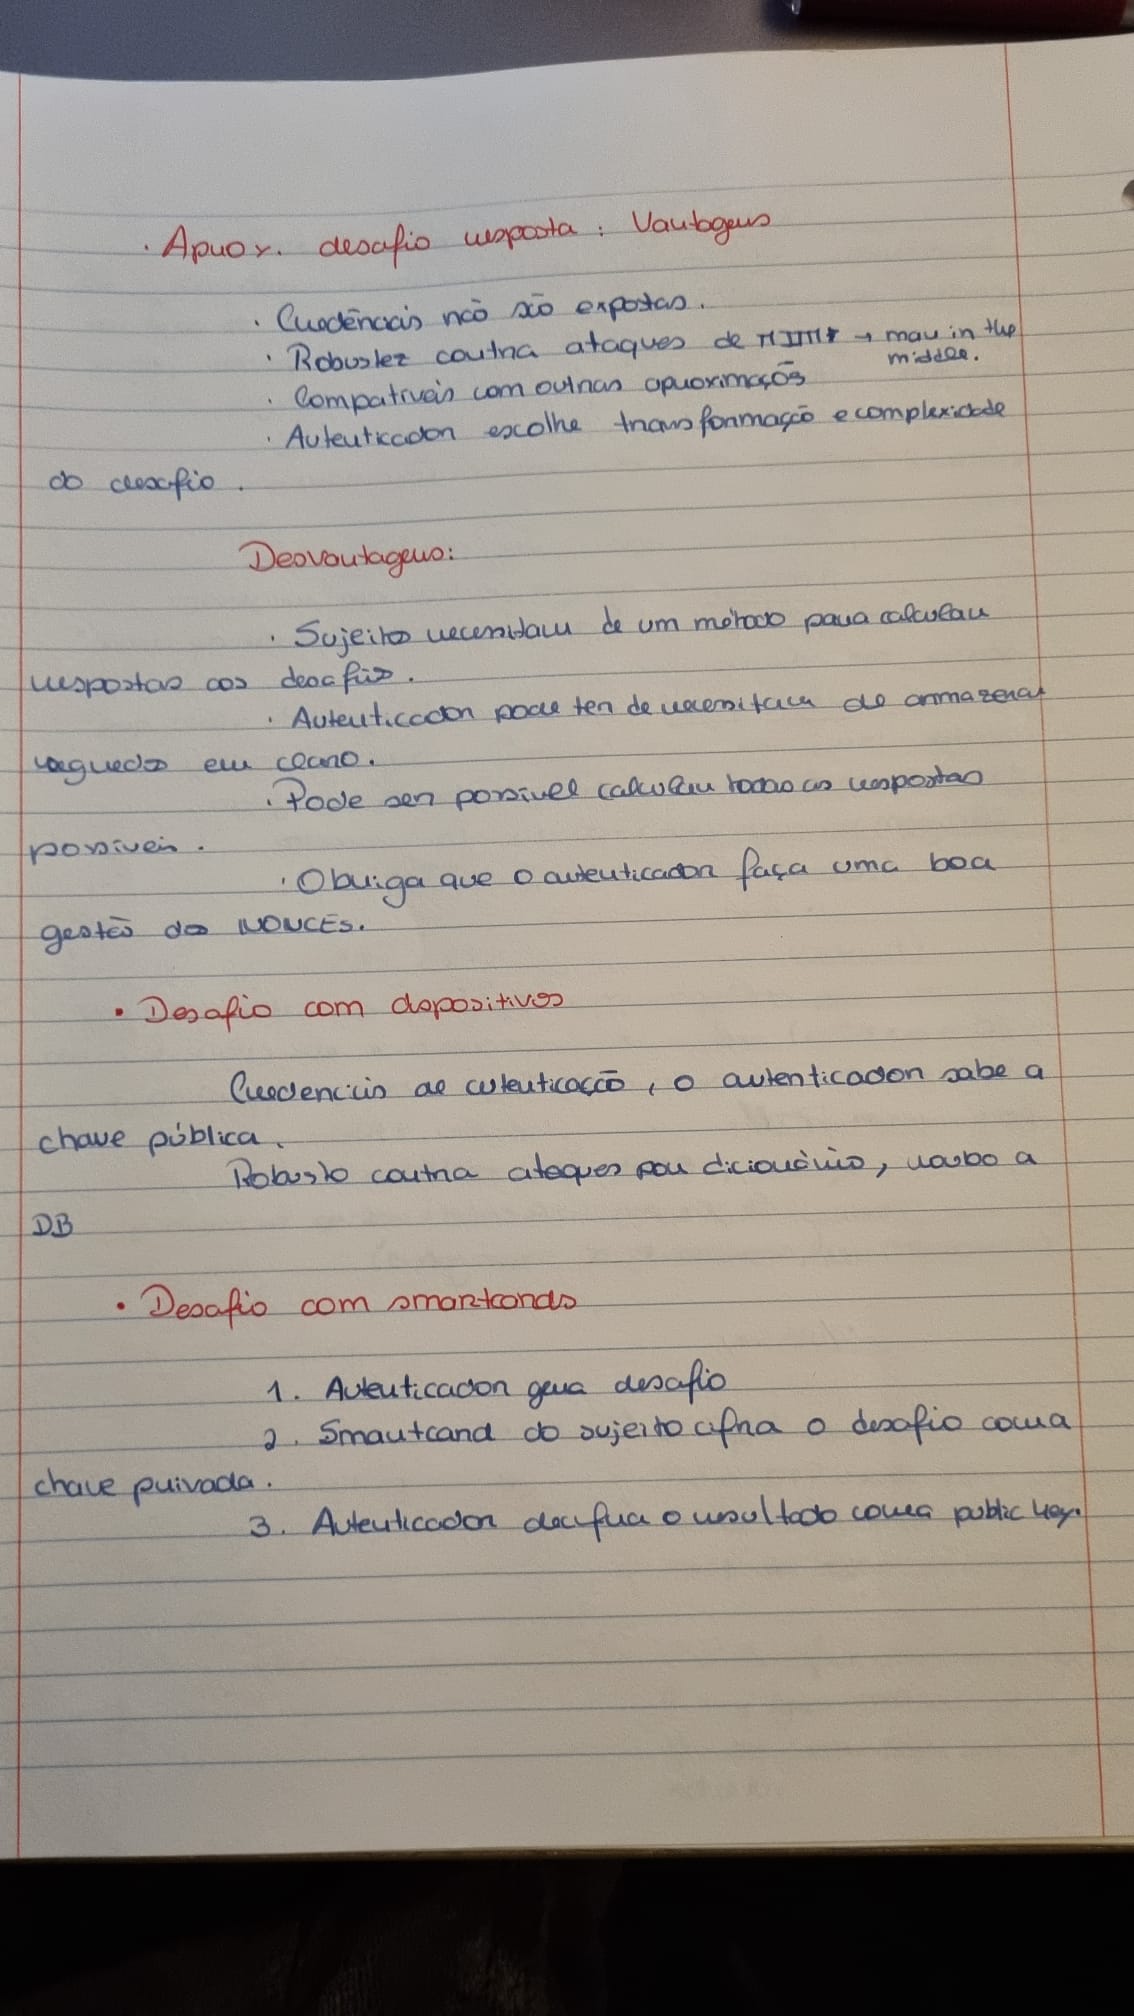 · Aprox. desafio resposta: Vantagens
· Credênciais não são expostas.
· Robustez contra ataques de MITM → man in the
middle.
· Compatíveis com outras aproximações
· Autenticador escolhe transformação e complexidade
do desafio.
Desvantagens:
· Sujeitos necessitam de um método para calcular
respostas aos desafios.
· Autenticador pode ter de necessitar de armazenar
segredos em claro.
· Pode ser possível calcular todas as respostas
possíveis.
· Obriga que o autenticador faça uma boa
gestão dos NONCES.
• Desafio com dispositivos
Credenciais de autenticação, o autenticador sabe a
chave pública.
Robusto contra ataques por dicionário, roubo a
DB
• Desafio com smartcards
1. Autenticador gera desafio
2. Smartcard do sujeito cifra o desafio com a
chave privada.
3. Autenticador decifra o resultado com a public key.